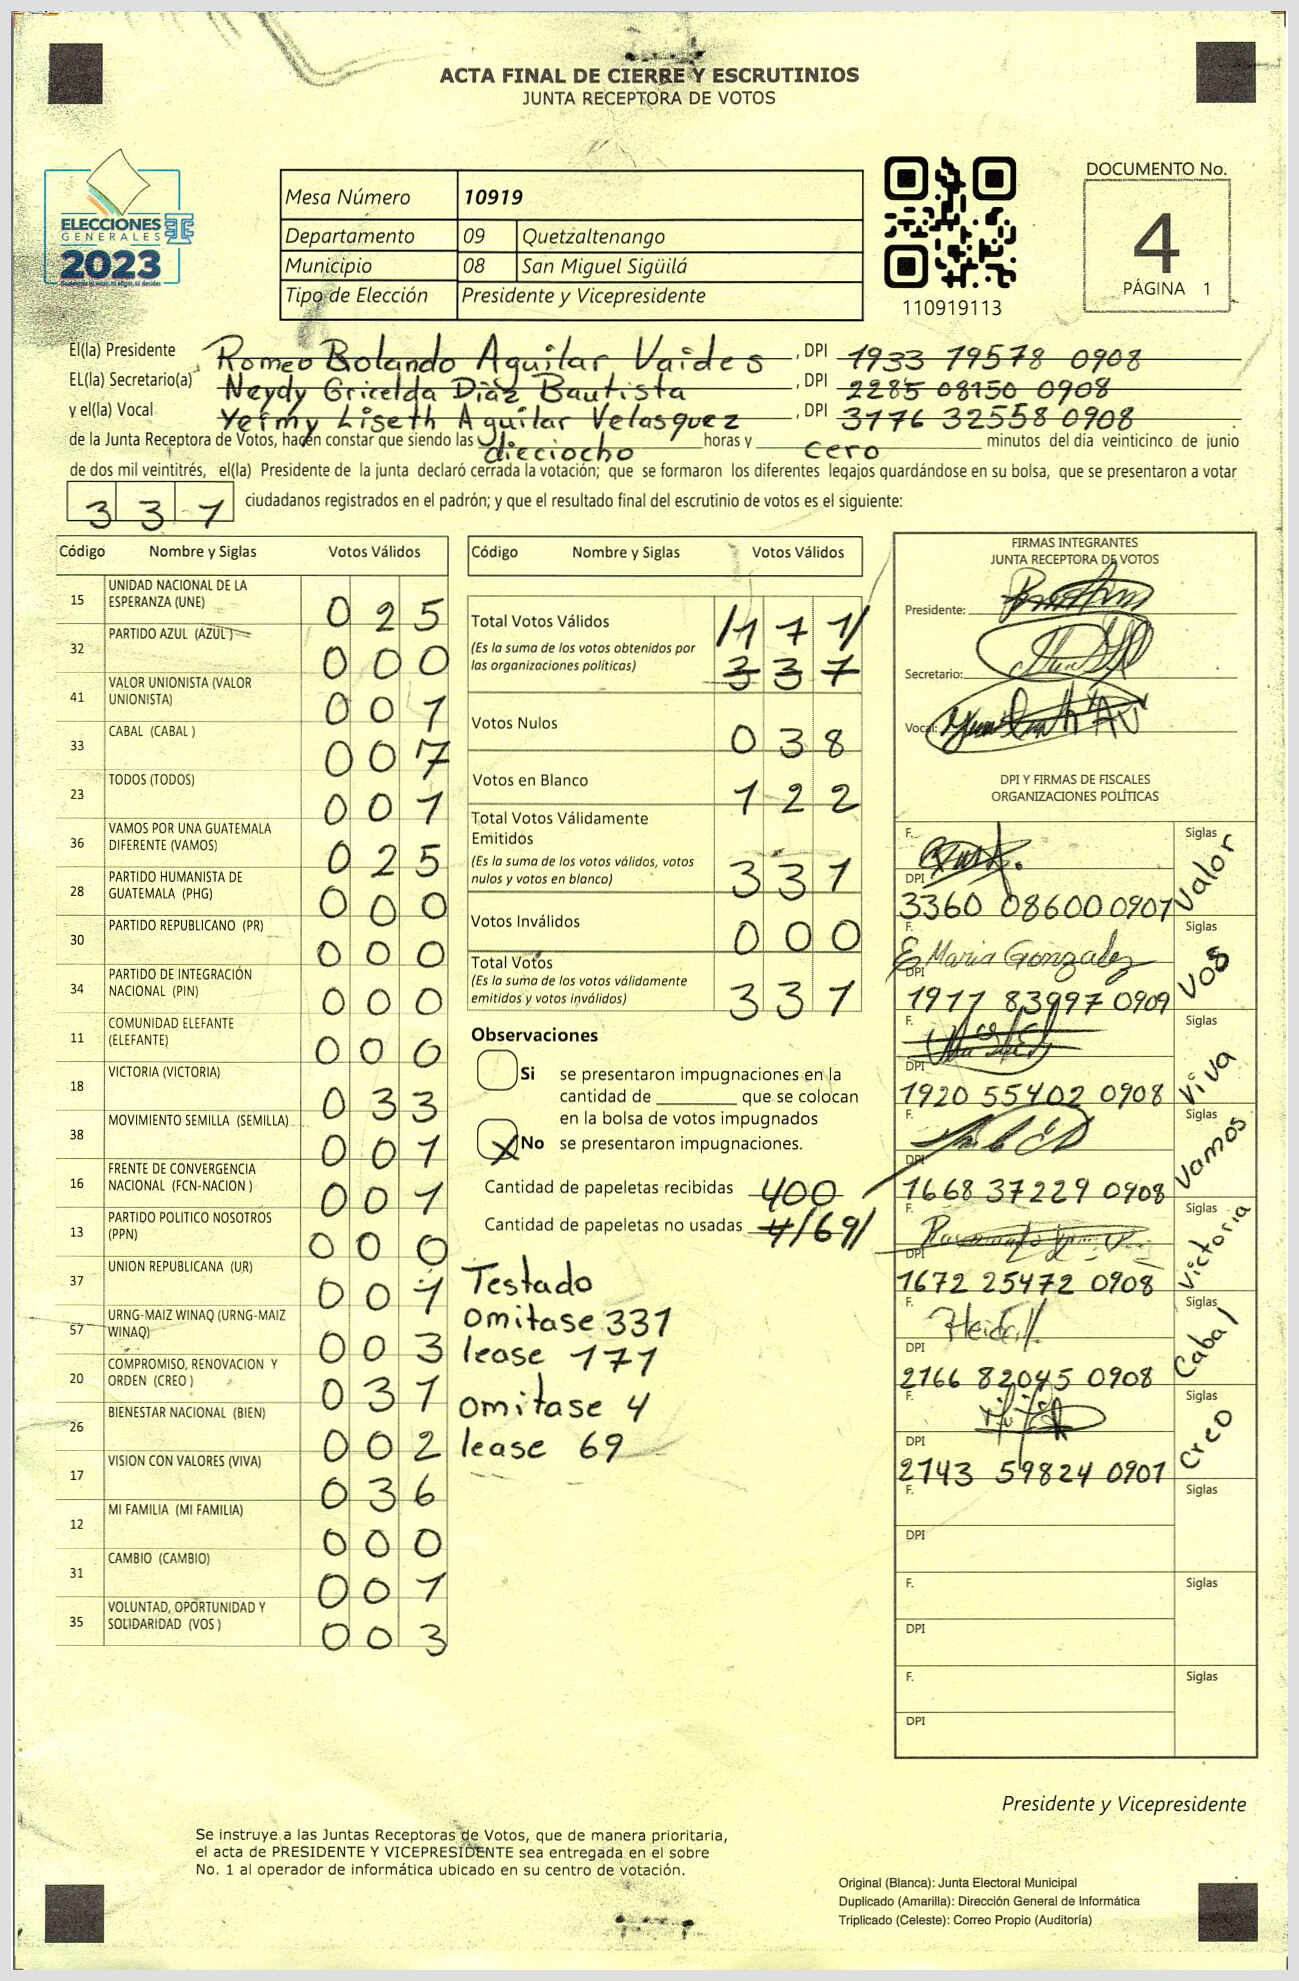 ACTA FINAL DE CIERRE Y ESCRUTINIOS
JUNTA RECEPTORA DE VOTOS
ELECCIONES
GENERALES
2023
Mesa Número 10919
Departamento 09 Quetzaltenango
Municipio 08 San Miguel Sigüilá
Tipo de Elección Presidente y Vicepresidente
110919113
DOCUMENTO No.
4
PÁGINA 1
El(la) Presidente Romeo Rolando Aguilar Vaides, DPI 1933 19578 0908
EL(la) Secretario(a) Neydy Gricelda Diaz Bautista, DPI 2285 08150 0908
y el(la) Vocal Yeimy Liseth Aguilar Velasquez, DPI 3776 32558 0908
de la Junta Receptora de Votos, hacen constar que siendo las dieciocho horas y cero minutos del día veinticinco de junio
de dos mil veintitrés, el(la) Presidente de la junta declaró cerrada la votación; que se formaron los diferentes legajos guardándose en su bolsa, que se presentaron a votar
337 ciudadanos registrados en el padrón; y que el resultado final del escrutinio de votos es el siguiente:
Código Nombre y Siglas Votos Válidos
15 UNIDAD NACIONAL DE LA ESPERANZA (UNE) 025
32 PARTIDO AZUL (AZUL) 000
41 VALOR UNIONISTA (VALOR UNIONISTA) 001
33 CABAL (CABAL ) 007
23 TODOS (TODOS) 001
36 VAMOS POR UNA GUATEMALA DIFERENTE (VAMOS) 025
28 PARTIDO HUMANISTA DE GUATEMALA (PHG) 000
30 PARTIDO REPUBLICANO (PR) 000
34 PARTIDO DE INTEGRACIÓN NACIONAL (PIN) 000
11 COMUNIDAD ELEFANTE (ELEFANTE) 000
18 VICTORIA (VICTORIA) 033
38 MOVIMIENTO SEMILLA (SEMILLA) 001
16 FRENTE DE CONVERGENCIA NACIONAL (FCN-NACION ) 001
13 PARTIDO POLITICO NOSOTROS (PPN) 000
37 UNION REPUBLICANA (UR) 001
57 URNG-MAIZ WINAQ (URNG-MAIZ WINAQ) 003
20 COMPROMISO, RENOVACION Y ORDEN (CREO ) 031
26 BIENESTAR NACIONAL (BIEN) 002
17 VISION CON VALORES (VIVA) 036
12 MI FAMILIA (MI FAMILIA) 000
31 CAMBIO (CAMBIO) 001
35 VOLUNTAD, OPORTUNIDAD Y SOLIDARIDAD (VOS ) 003
Código Nombre y Siglas Votos Válidos
Total Votos Válidos /171/
(Es la suma de los votos obtenidos por
las organizaciones políticas) 337
Votos Nulos 038
Votos en Blanco 122
Total Votos Válidamente
Emitidos
(Es la suma de los votos válidos, votos
nulos y votos en blanco) 331
Votos Inválidos 000
Total Votos
(Es la suma de los votos válidamente
emitidos y votos inválidos) 331
Observaciones
Si se presentaron impugnaciones en la
cantidad de ________ que se colocan
en la bolsa de votos impugnados
X No se presentaron impugnaciones.
Cantidad de papeletas recibidas 400
Cantidad de papeletas no usadas 4/69/
Testado
omitase 331
lease 171
omitase 4
lease 69
FIRMAS INTEGRANTES
JUNTA RECEPTORA DE VOTOS
Presidente:
Secretario:
Vocal:
DPI Y FIRMAS DE FISCALES
ORGANIZACIONES POLÍTICAS
F. Siglas Valor
DPI 3360 08600 0907
F. Maria Gonzalez Siglas VOS
DPI 1911 83997 0909
F. Siglas Viva
DPI 1920 55402 0908
F. Siglas Vamos
DPI 1668 37229 0908
F. Siglas Victoria
DPI 1672 25472 0908
F. Siglas Cabal
DPI 2166 82045 0908
F. Siglas Creo
DPI 2143 59824 0901
F. Siglas
DPI
F. Siglas
DPI
F. Siglas
DPI
Presidente y Vicepresidente
Se instruye a las Juntas Receptoras de Votos, que de manera prioritaria,
el acta de PRESIDENTE Y VICEPRESIDENTE sea entregada en el sobre
No. 1 al operador de informática ubicado en su centro de votación.
Original (Blanca): Junta Electoral Municipal
Duplicado (Amarilla): Dirección General de Informática
Triplicado (Celeste): Correo Propio (Auditoría)